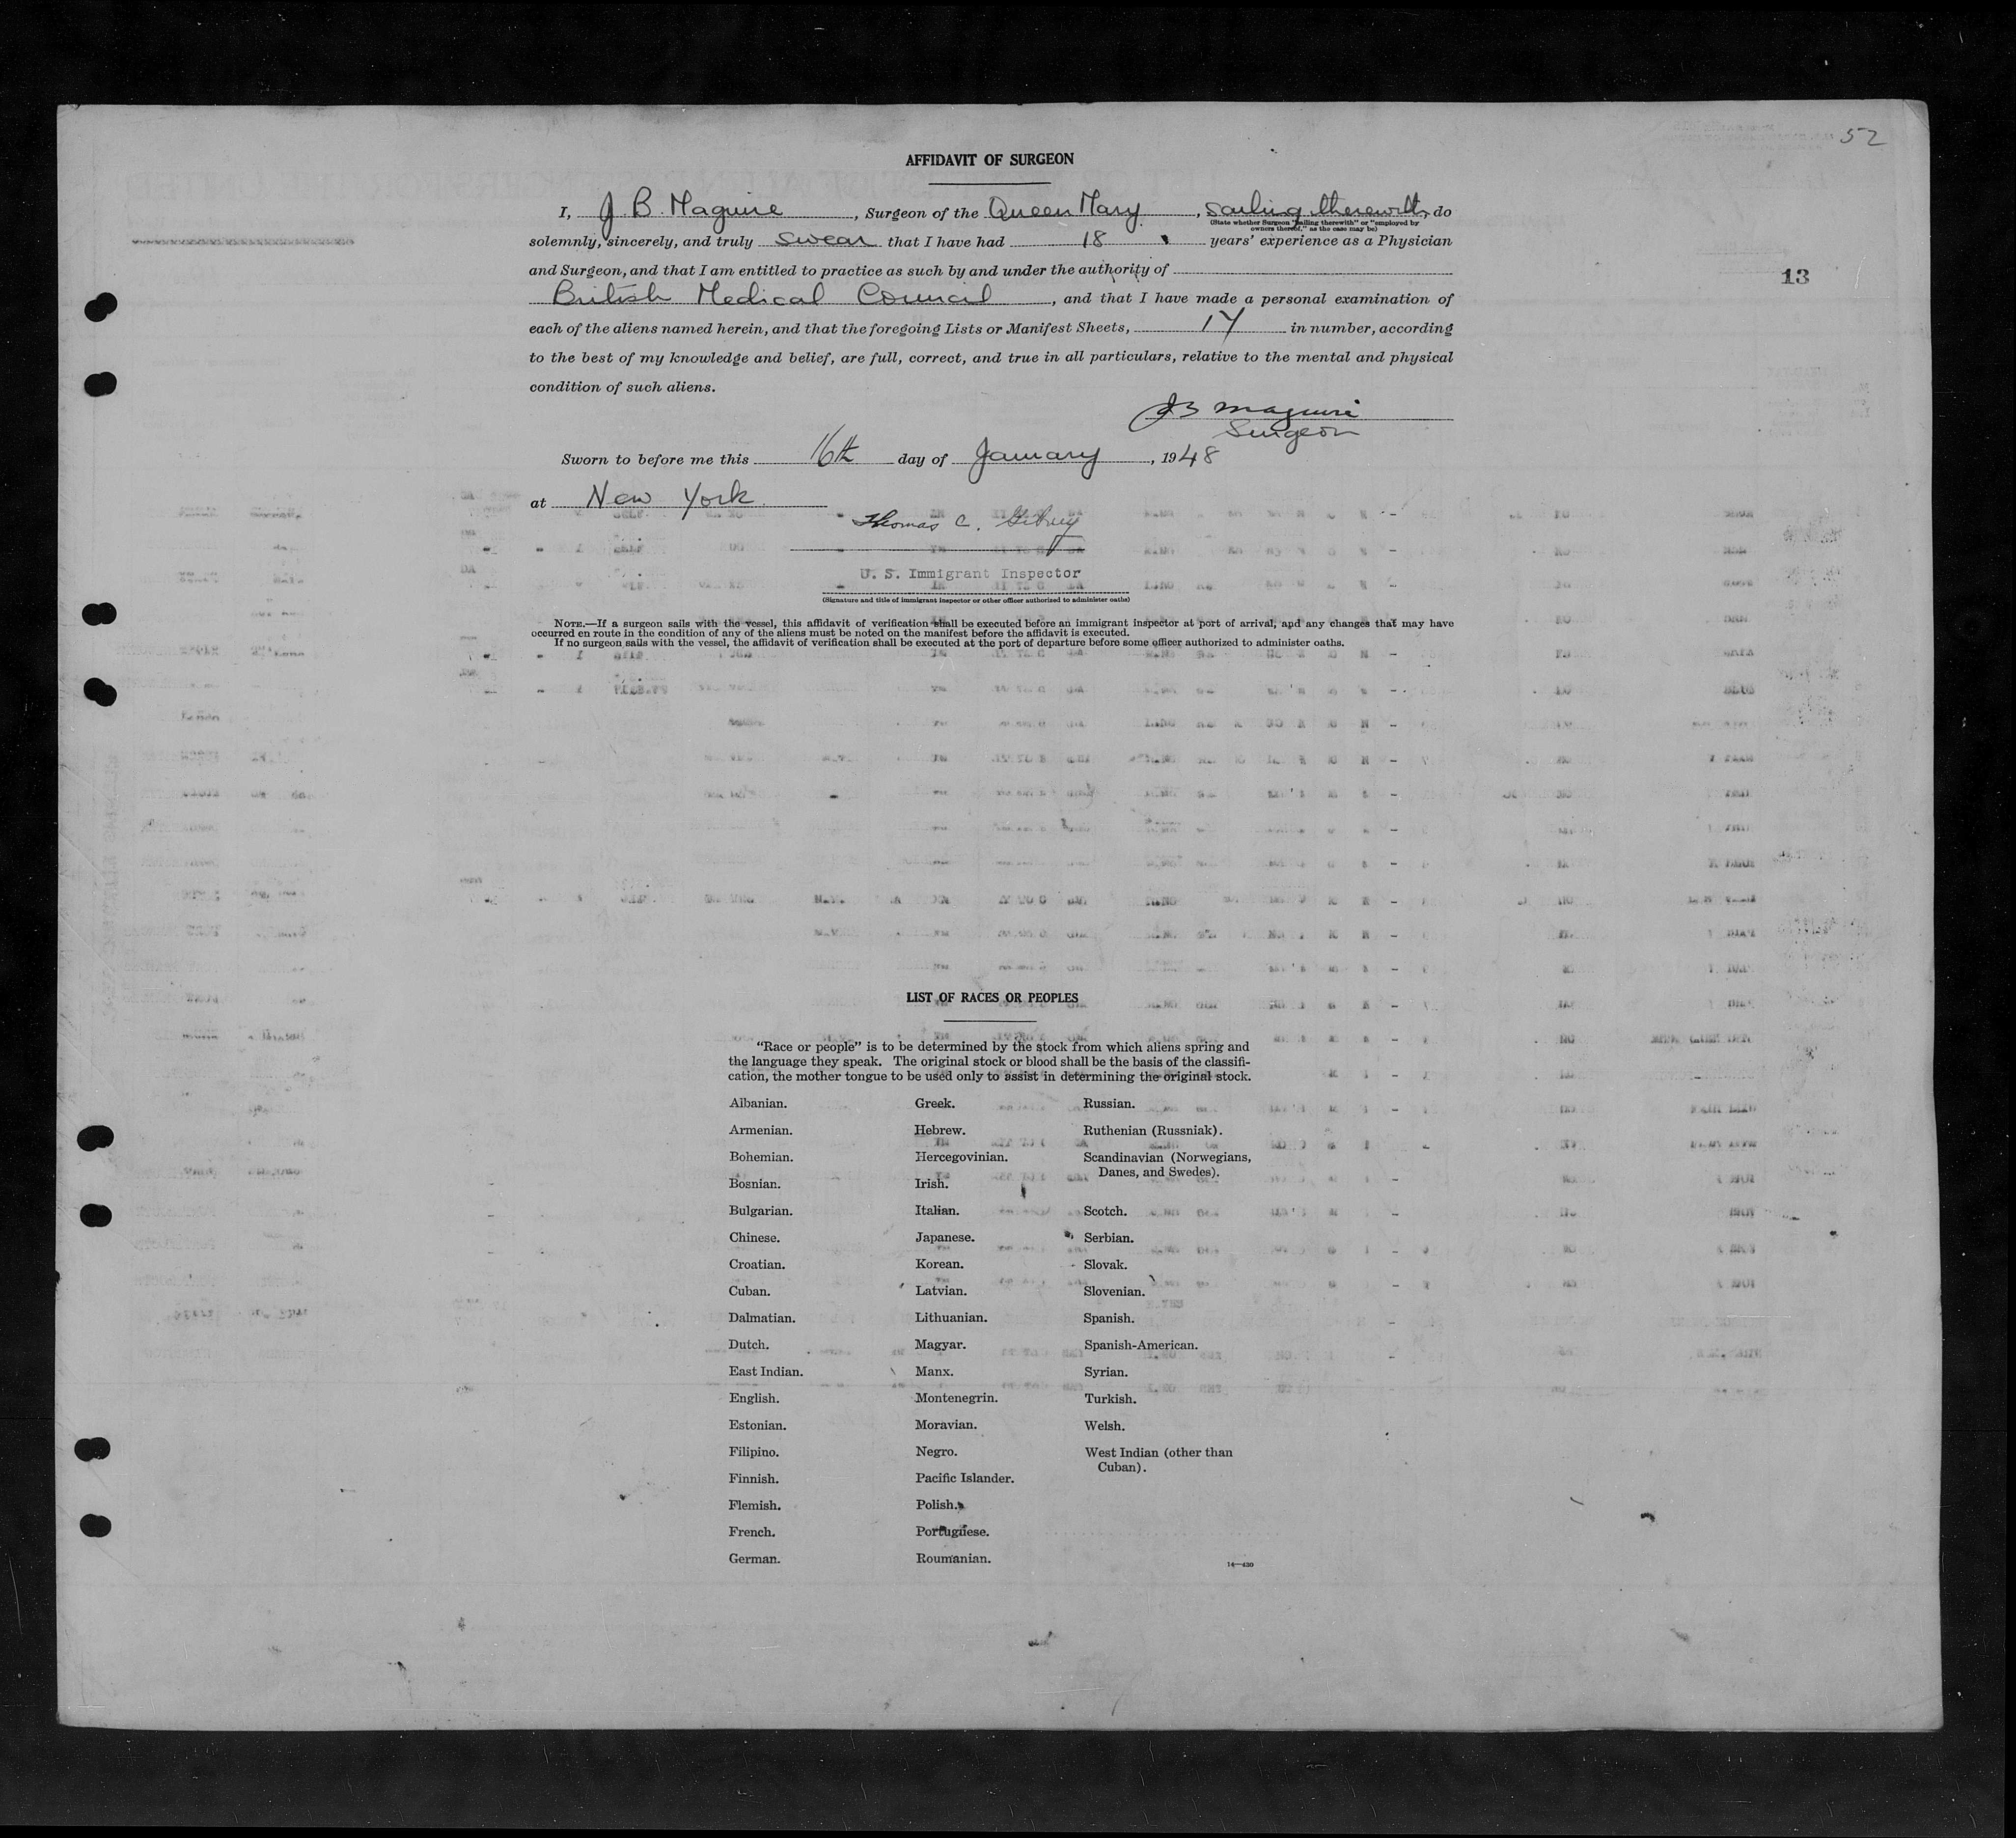 52
AFFIDAVIT OF SURGEON
I, J. B. Maguire, Surgeon of the Queen Mary, sailing therewith, do
(State whether Surgeon "sailing therewith" or "employed by
owners thereof," as the case may be)
solemnly, sincerely, and truly swear that I have had 18 years' experience as a Physician
and Surgeon, and that I am entitled to practice as such by and under the authority of
13
British Medical Council, and that I have made a personal examination of
each of the aliens named herein, and that the foregoing Lists or Manifest Sheets, 17 in number, according
to the best of my knowledge and belief, are full, correct, and true in all particulars, relative to the mental and physical
condition of such aliens.
J B Maguire
Surgeon
Sworn to before me this 16th day of January, 1948
at New York
Thomas C.
U. S. Immigrant Inspector
(Signature and title of immigrant inspector or other officer authorized to administer oaths)
NOTE.—If a surgeon sails with the vessel, this affidavit of verification shall be executed before an immigrant inspector at port of arrival, and any changes that may have
occurred en route in the condition of any of the aliens must be noted on the manifest before the affidavit is executed.
If no surgeon sails with the vessel, the affidavit of verification shall be executed at the port of departure before some officer authorized to administer oaths.
LIST OF RACES OR PEOPLES
"Race or people" is to be determined by the stock from which aliens spring and
the language they speak. The original stock or blood shall be the basis of the classifi-
cation, the mother tongue to be used only to assist in determining the original stock.
Albanian.
Armenian.
Bohemian.
Bosnian.
Bulgarian.
Chinese.
Croatian.
Cuban.
Dalmatian.
Dutch.
East Indian.
English.
Estonian.
Filipino.
Finnish.
Flemish.
French.
German.
Greek.
Hebrew.
Hercegovinian.
Irish.
Italian.
Japanese.
Korean.
Latvian.
Lithuanian.
Magyar.
Manx.
Montenegrin.
Moravian.
Negro.
Pacific Islander.
Polish.
Portuguese.
Roumanian.
Russian.
Ruthenian (Russniak).
Scandinavian (Norwegians,
Danes, and Swedes).
Scotch.
Serbian.
Slovak.
Slovenian.
Spanish.
Spanish-American.
Syrian.
Turkish.
Welsh.
West Indian (other than
Cuban).
14—430